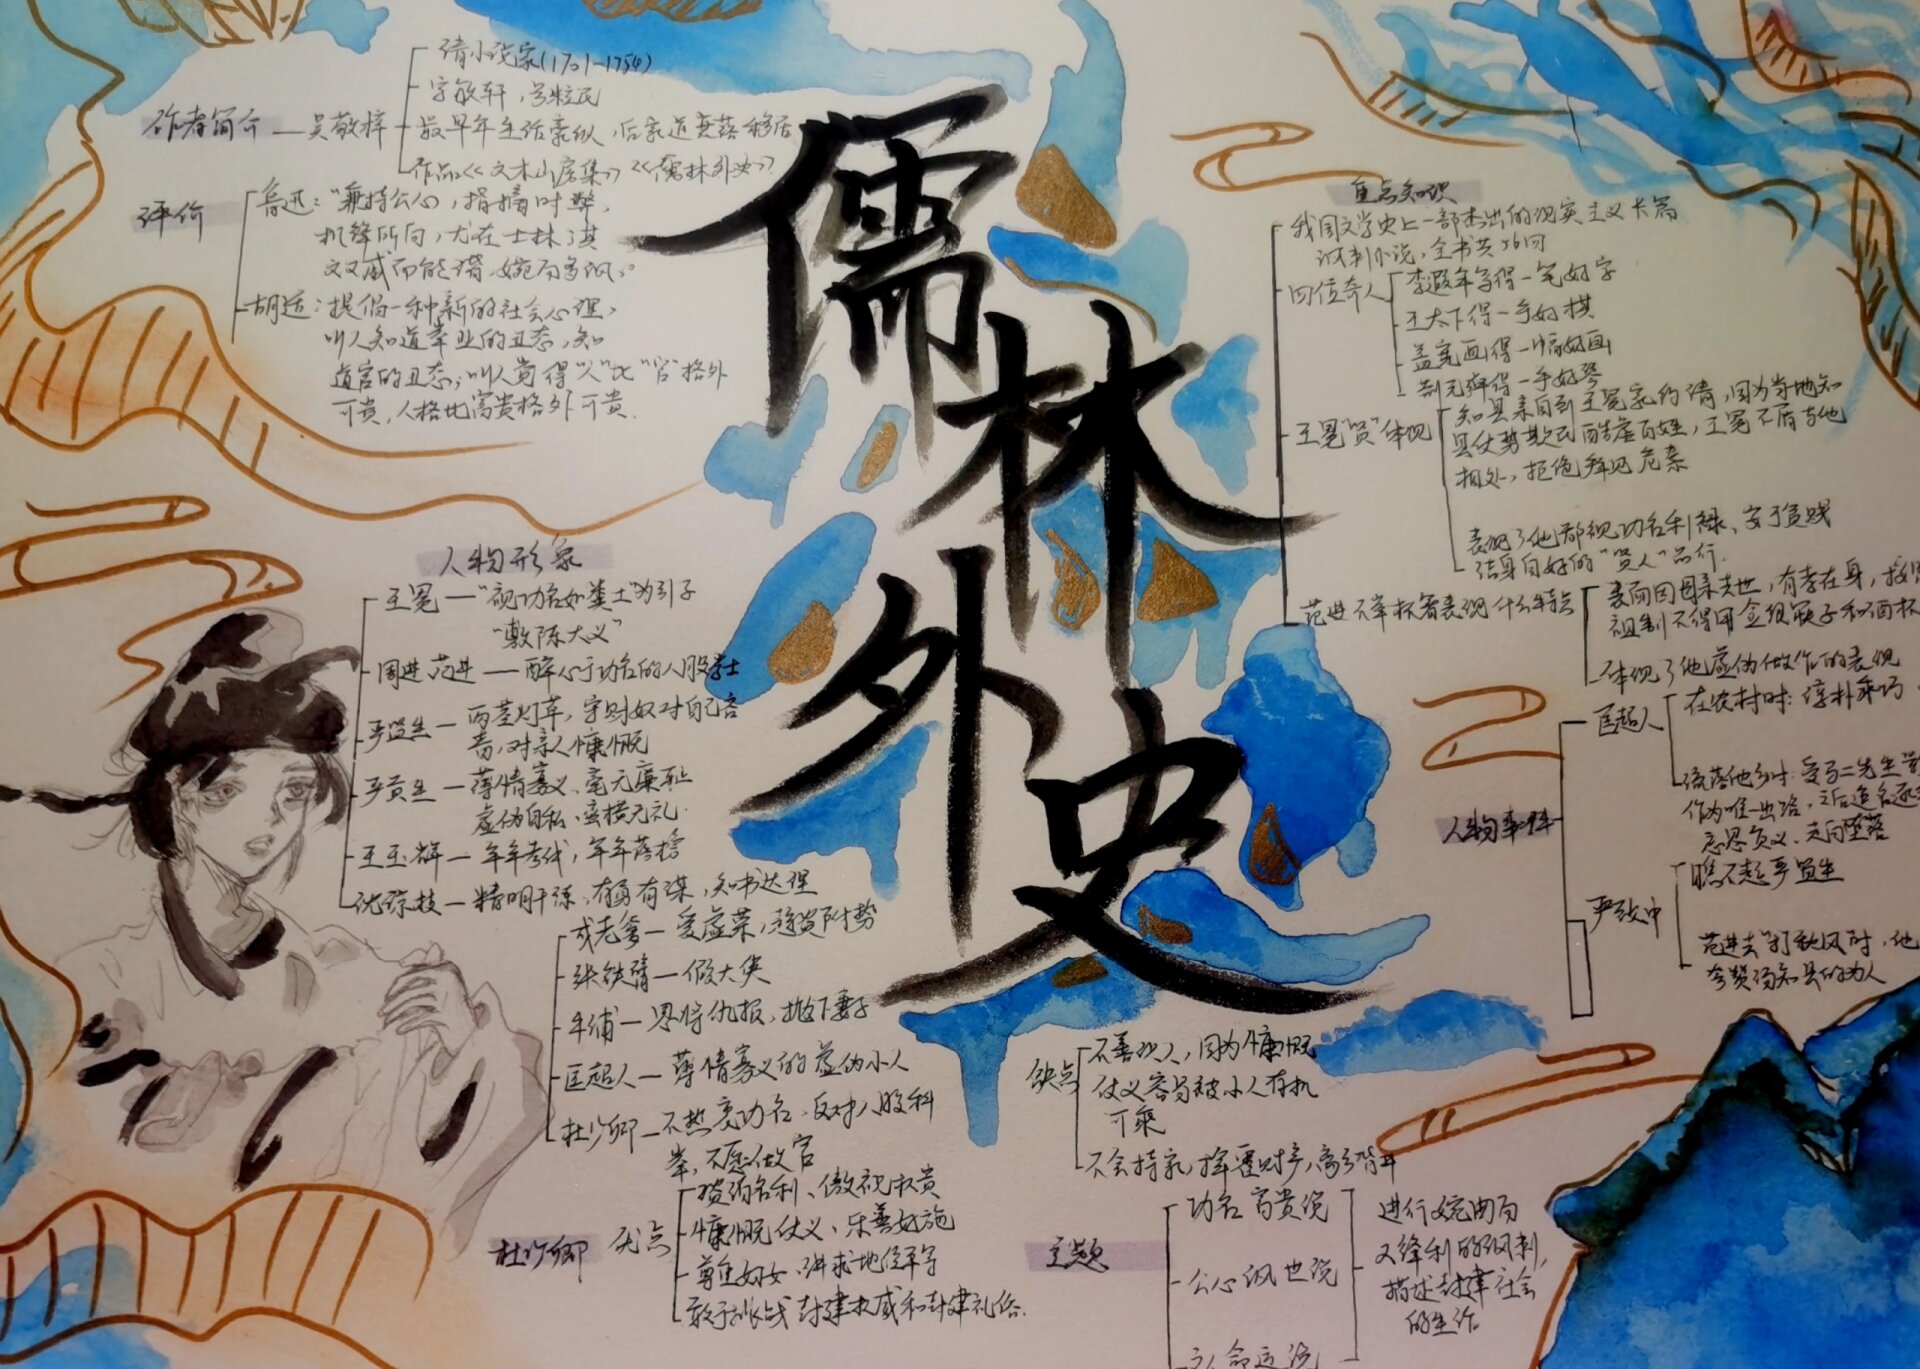 儒林外史
作者简介 — 吴敬梓
清小说家(1701-1754)
字敏轩，号粒民
最早年生活豪纵，后家道衰落移居
作品《文木山房集》《儒林外史》
评价
鲁迅："秉持公心，指摘时弊，
机锋所向，尤在士林；其
文又戚而能谐，婉而多讽。
胡适：提倡一种新的社会心理，
叫人知道举业的丑态，知
道官的丑态；叫人觉得"人"比"官"格外
可贵，人格比富贵格外可贵.
人物形象
王冕 — "视功名如粪土"为引子
"敷陈大义"
周进 范进 — 醉心于功名的八股学士
严监生 — 两茎灯草，守财奴对自己吝
啬，对亲人慷慨
严贡生 — 薄情寡义、毫无廉耻
虚伪自私、蛮横无礼.
王玉辉 — 年年考试，年年落榜
沈琼枝 — 精明干练，有勇有谋，知书达理
成老爹 — 爱虚荣，趋贵附势
张铁臂 — 假大侠
牛浦 — 恩将仇报，抛下妻子
匡超人 — 薄情寡义的虚伪小人
杜少卿 — 不热衷功名，反对八股科
举，不愿做官
杜少卿 优点
淡泊名利、傲视权贵
慷慨仗义、乐善好施
尊重妇女、讲求地位平等
敢于挑战封建权威和封建礼俗.
缺点
不善识人，因为慷慨
仗义容易被小人有机
可乘
不会持家，挥霍财产，
主题
功名富贵说
公心讽世说
命运说
进行婉曲而
又锋利的讽刺,
描述封建社会
的生活
重点知识
我国文学史上一部杰出的现实主义长篇
讽刺小说，全书共56回
四位奇人
季遐年写得一笔好字
王太下得一手好棋
盖宽画得一幅好画
荆元弹得一手好琴
王冕"贤"体现
知县亲自到王冕家约请，因为当地知
县仗势欺民酷虐百姓，王冕不屑与他
相处，拒绝拜见危素
表现了他鄙视功名利禄、安于贫贱
洁身自好的"贤人"品行.
范进不举杯箸表现什么特点
表面因母亲去世，有孝在身，按照
祖制不得用金银筷子和酒杯
体现了他虚伪做作的表现
人物事件
匡超人
在农村时：淳朴乖巧
流落他乡时：受马二先生
作为唯一出路，之后追名逐
忘恩负义、走向堕落
严致中
瞧不起严监生
范进去"打秋风时，他
夸赞汤知县的为人